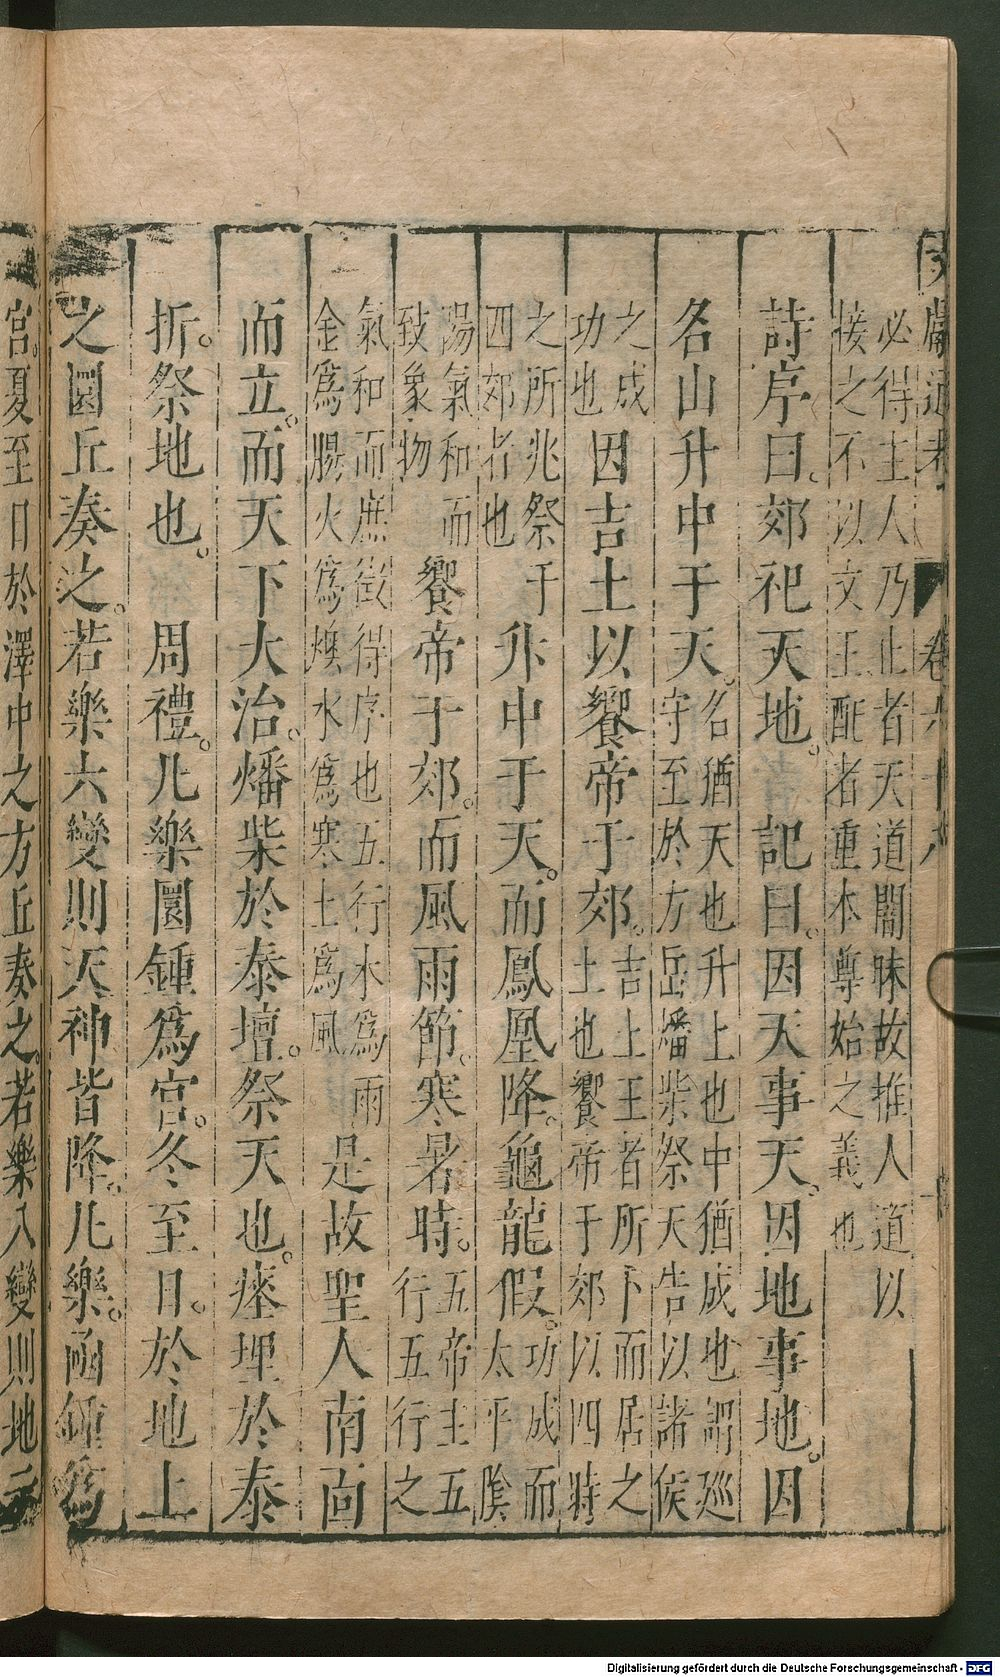 文獻通考 卷六十八
必得主人乃止者天道闇昧故推人道以
接之不以文王配者重本尊始之義也
詩序曰。郊祀天地。 記曰。因天事天。因地事地。因
名山升中于天。名猶天也升上也中猶成也謂廵
守至於方岳燔柴祭天告以諸侯
之成
功也因吉土以饗帝于郊。吉上王者所卜而居之
土也饗帝于郊以四時
之所兆祭于
四郊者也升中于天。而鳳凰降。龜龍假。功成而
太平隂
陽氣和而
致象物饗帝于郊。而風雨節。寒暑時。五帝主五
行五行之
氣和而庶徴得序也五行木爲雨
金爲腸火爲燠水爲寒土爲風是故聖人南面
而立。而天下大治。燔柴於泰壇。祭天也。瘞埋於泰
折。祭地也。 周禮。凡樂圜鍾爲宮。冬至日。於地上
之圜丘奏之。若樂六變則天神皆降。凡樂。函鍾爲
宮。夏至日於澤中之方丘奏之。若樂八變則地示
Digitalisierung gefördert durch die Deutsche Forschungsgemeinschaft - DFG